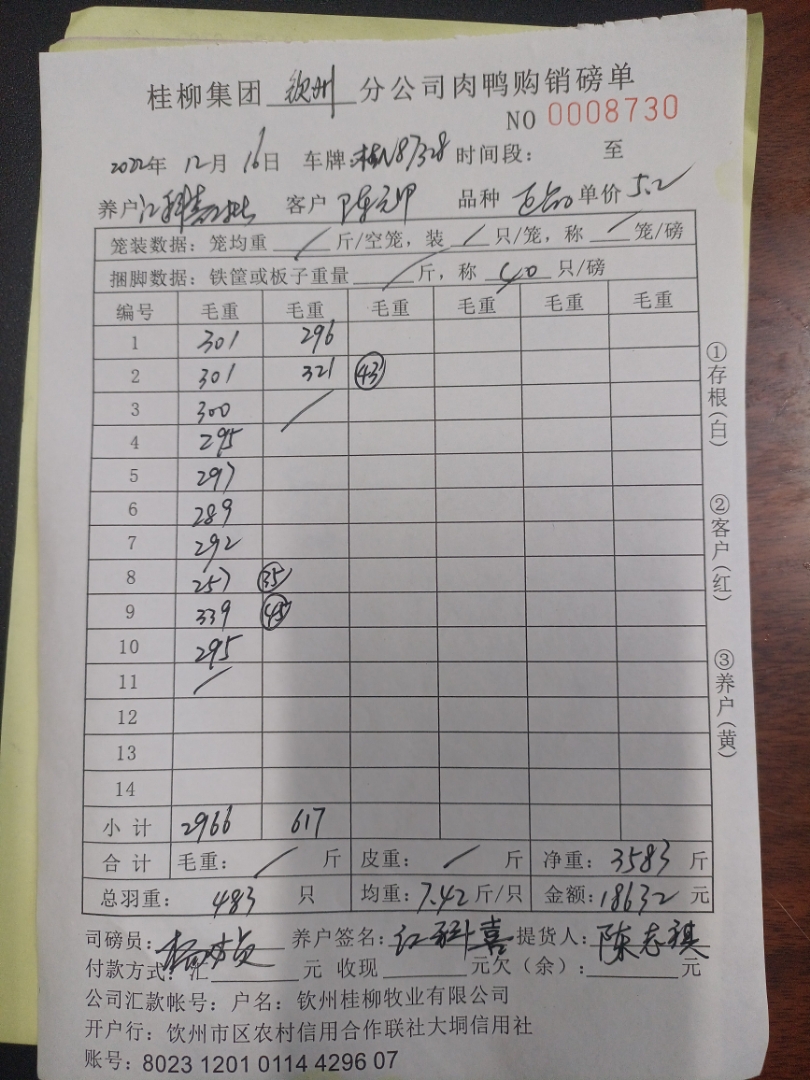 桂柳集团 钦州 分公司肉鸭购销磅单
NO 0008730
2022年 12月 16日 车牌: 桂N87328 时间段: 至
养户 客户 陈元甲 品种 单价 5.2
笼装数据: 笼均重 / 斤/空笼, 装 / 只/笼, 称 / 笼/磅
捆脚数据: 铁筐或板子重量 / 斤, 称 40 只/磅
编号 毛重 毛重 毛重 毛重 毛重 毛重
1 301 296
2 301 321 43
3 300 /
4 295
5 297
6 289
7 292
8 257 35
9 339 45
10 295
11 /
12
13
14
小计 2966 617
合计 毛重: / 斤 皮重: / 斤 净重: 3583 斤
总羽重: 483 只 均重: 7.42 斤/只 金额: 18632 元
司磅员: 养户签名: 江科喜 提货人: 陈志祺
付款方式: 汇 元 收现 元欠(余): 元
公司汇款帐号: 户名: 钦州桂柳牧业有限公司
开户行: 钦州市区农村信用合作联社大垌信用社
账号: 8023 1201 0114 4296 07
①存根(白)
②客户(红)
③养户(黄)